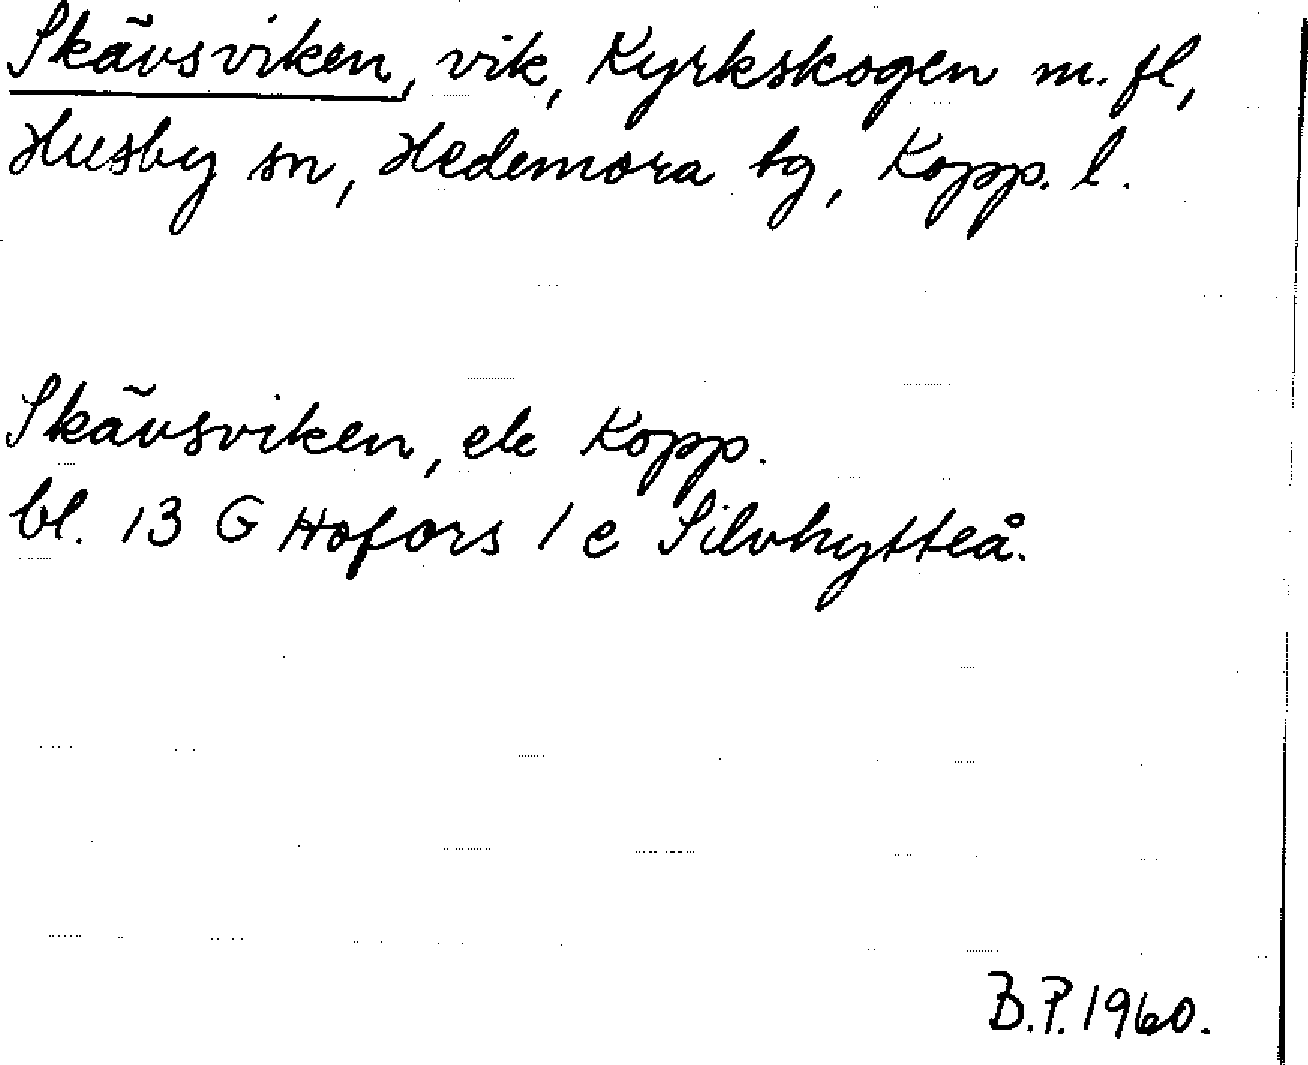 Skävsviken, vik, Kyrkskogen m. fl,
Husby sn, Hedemora bg, Kopp. l.
Skävsviken, ek Kopp.
bl. 13 G Hofors 1 c Silvhytteå.
B.P. 1960.